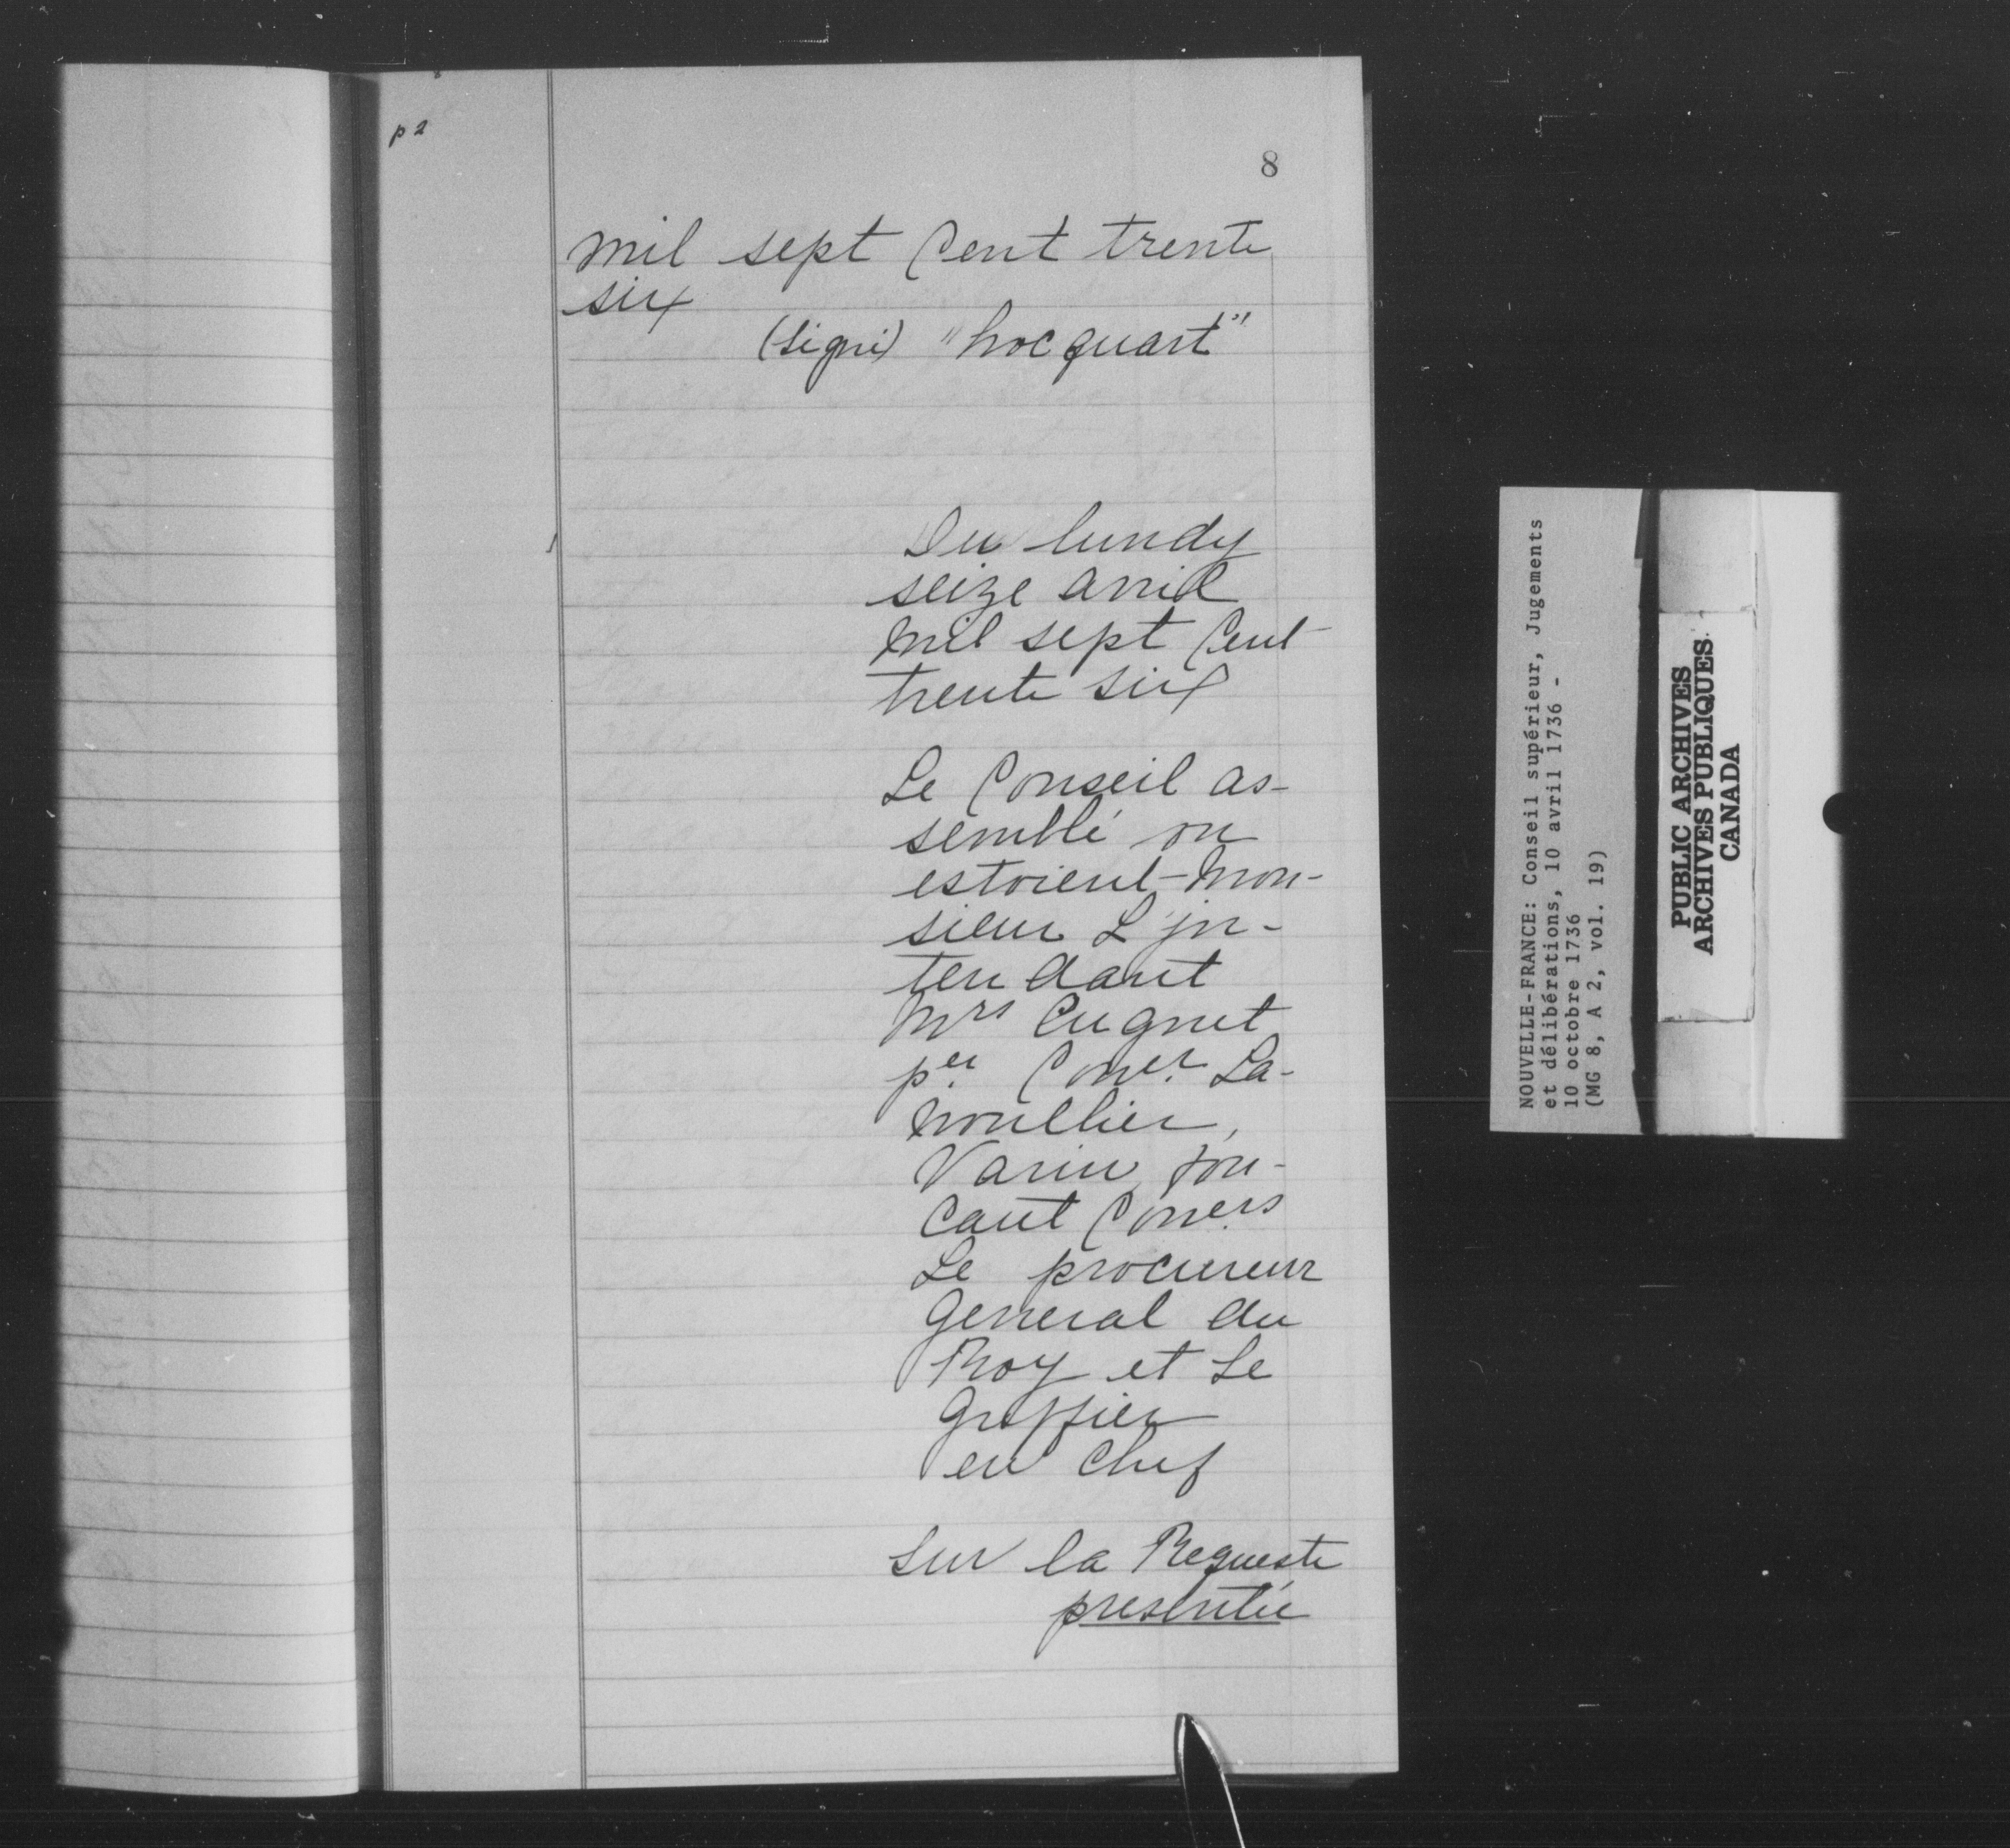 p 2
8
mil sept Cent trente
six
(signé) "hocquart"
Du lundy
seize avril
mil sept Cent
trente six
Le Conseil as-
semblé ou
estoient Mon-
sieur L'jn-
tendant
Mrs Cugnet
per. Coner. La-
noullier,
Varin, fou-
cault Coners
Le procureur
General du
Roy et Le
Greffier
en chef
Sur la Requeste
presentée
NOUVELLE-FRANCE: Conseil supérieur, Jugements
et délibérations, 10 avril 1736 -
10 octobre 1736
(MG 8, A 2, vol. 19)
PUBLIC ARCHIVES
ARCHIVES PUBLIQUES
CANADA